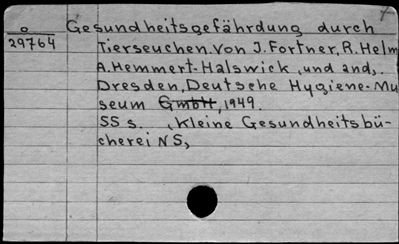 o
29764
Gesundheitsgefährdung durch
Tierseuchen. Von J. Fortner, R. Helm
A. Hemmert-Halswick, und and,.
Dresden, Deutsche Hygiene-Mu
seum GmbH, 1949.
SS s. , Kleine Gesundheitsbü-
cherei NS,